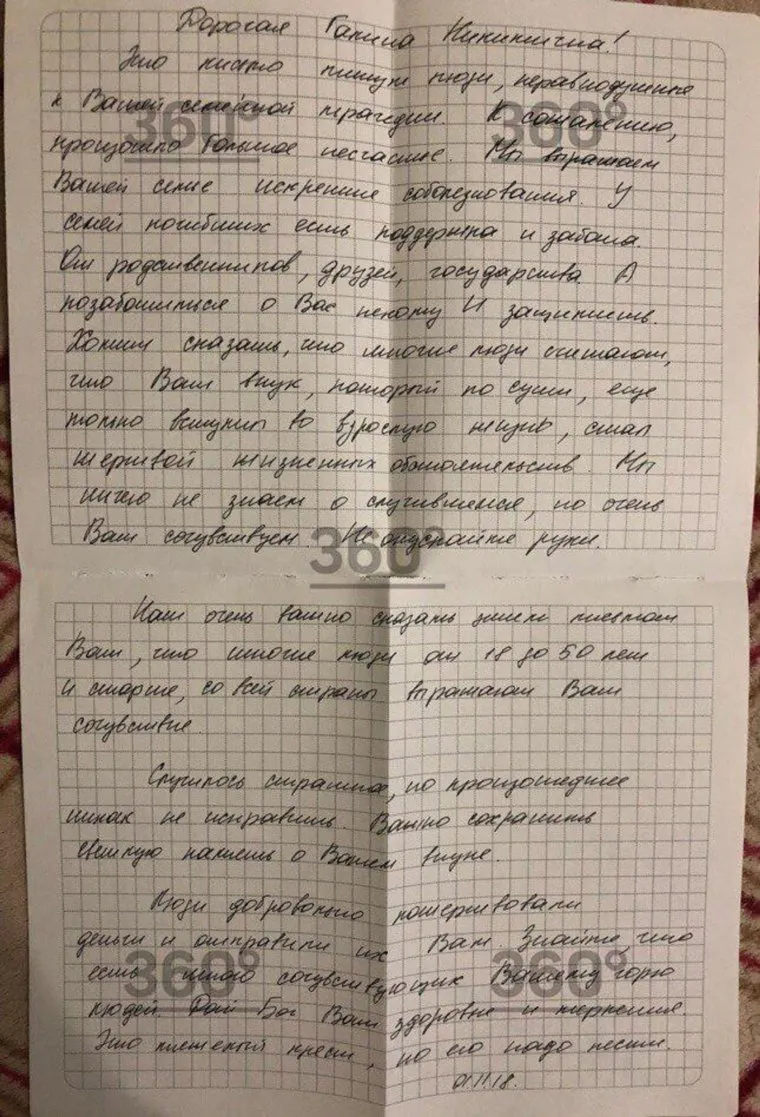 Дорогая Галина Никитична!
Это письмо пишут люди, неравнодушные
к Вашей семейной трагедии. К сожалению,
произошло большое несчастье. Мы выражаем
Вашей семье искренние соболезнования. У
семей погибших есть поддержка и забота.
От родственников, друзей, государства. А
позаботиться о Вас некому И защитить.
Хотим сказать, что многие люди считают,
что Ваш внук, который по сути, еще
только вступил во взрослую жизнь, стал
жертвой жизненных обстоятельств. Мы
ничего не знаем о случившемся, но очень
Вам сочувствуем. Не опускайте руки.
360°
360°
360°
Нам очень важно сказать этим письмом
Вам, что многие люди от 18 до 50 лет
и старше, со всей страны выражают Вам
сочувствие.
Случилось страшное, но произошедшее
никак не исправить. Важно сохранить
светлую память о Вашем внуке.
Люди добровольно пожертвовали
деньги и отправили их Вам. Знайте, что
есть много сочувствующих Вашему горю
людей. Дай Бог Вам здоровья и терпения.
Это тяжелый крест, но его надо нести.
01.11.18.
360°
360°